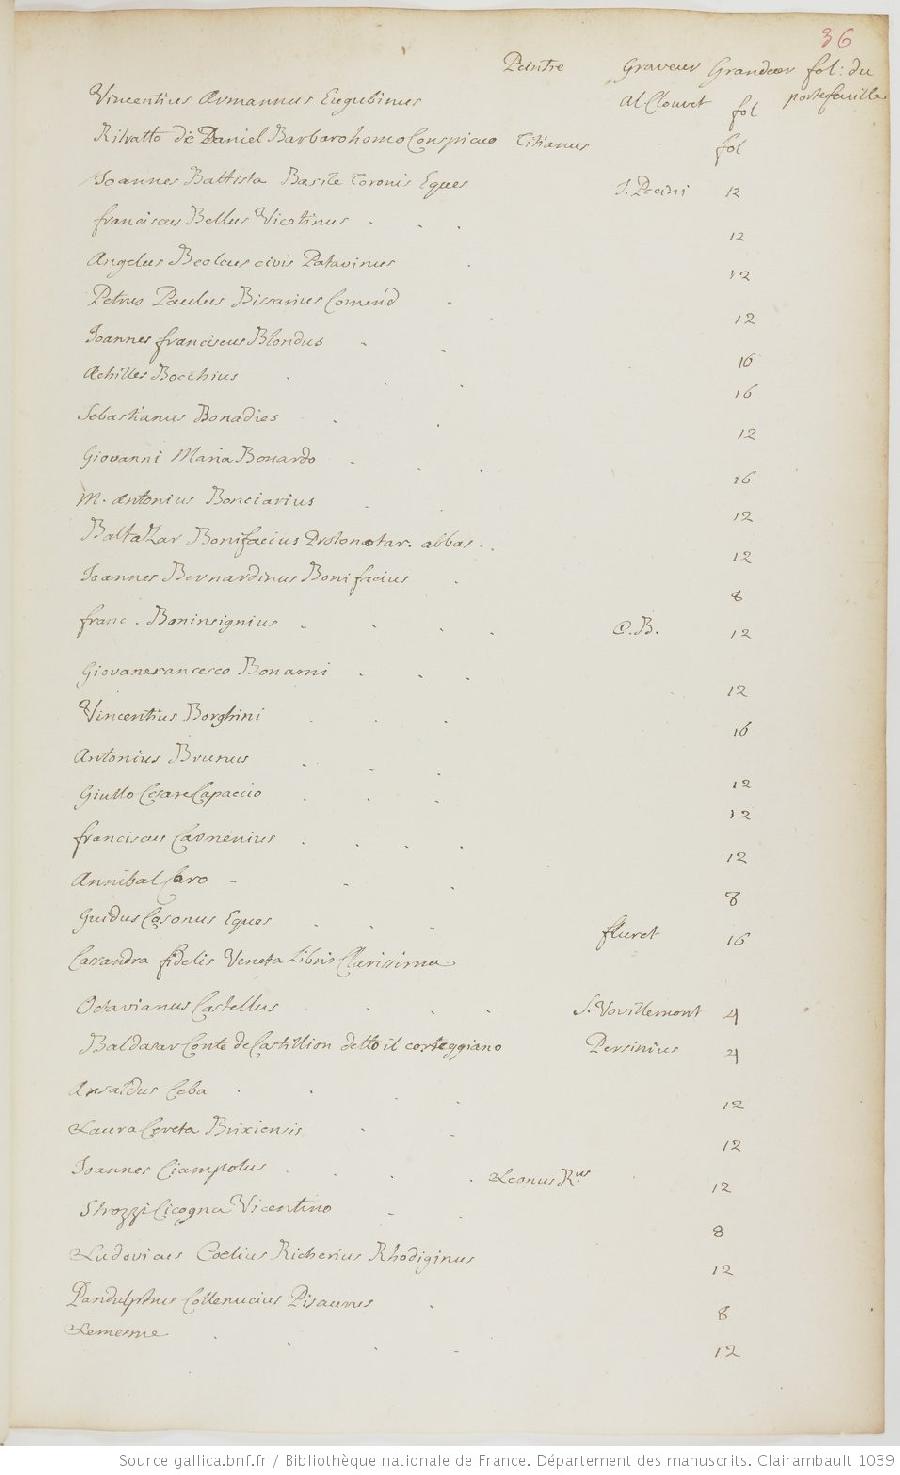 36
Peintre Graveur Grandeur fol: du portefeuille
Vincentius Armannus Eugubinus Al Clouet fol
Ritratto di Daniel Barbaro homo Conspicuo Titianus fol
Joannes Battista Basile Toronis Eques J. Pecini 12
franciscus Bellus Vicetinus 12
Angelus Beolcus civis Patavinus 12
Petrus Paulus Bissarius Comend 12
Joannes franciscus Blondus 16
Achilles Bocchius 16
Sebastianus Bonadies 12
Giovanni Maria Bonardo 16
M. Antonius Bonciarius 12
Baltazar Bonifacius Protonotar. abbas 12
Joannes Bernardinus Bonifacius 8
franc. Boninsignius C.B. 12
Giovanefrancesco Bonami 12
Vincentius Borghini 16
Antonius Brunus 12
Giulio Cesare Capaccio 12
franciscus Carmenius 12
Annibal Caro 8
Guidus Casonus Eques fluret 16
Casandra fidelis Veneta Libris Clarissima
Octavianus Castellus S. Vovillemont 4
Baldasar Conte de Castillion detto il corteggiano Persinius 4
Ansaldus Ceba 12
Laura Cereta Brixiensis 12
Joannes Ciampolus Leonus R.us 12
Strozzi Cicogna Vicentino 8
Ludovicus Coelius Richerius Rhodiginus 12
Pandulphus Collenucius Pisaunus 8
Lemene 12
Source gallica.bnf.fr / Bibliothèque nationale de France. Département des manuscrits. Clairambault 1039